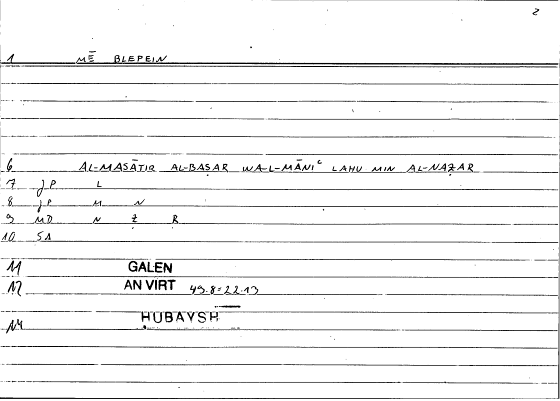 2
1 MĒ BLEPEIN
6 AL-MASĀTIR AL-BAṢAR WA-L-MĀNIᶜ LAHU MIN AL-NAẒAR
7 JP L
8 JP M N
9 MD N Ẓ R
10 SA
11 GALEN
12 AN VIRT 49.8=22.13
14 ḤUBAYSH